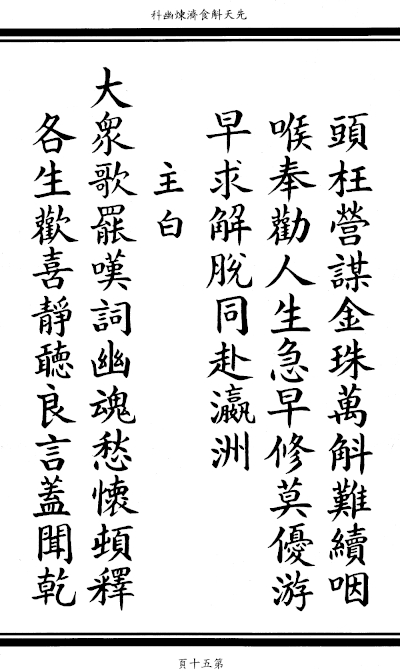 先天斛食濟煉幽科
頭枉營謀金珠萬斛難續咽
喉奉勸人生急早修莫優游
早求解脫同赴瀛洲
主白
大眾歌罷嘆詞幽魂愁懷頓釋
各生歡喜靜聽良言蓋聞乾
第五十頁